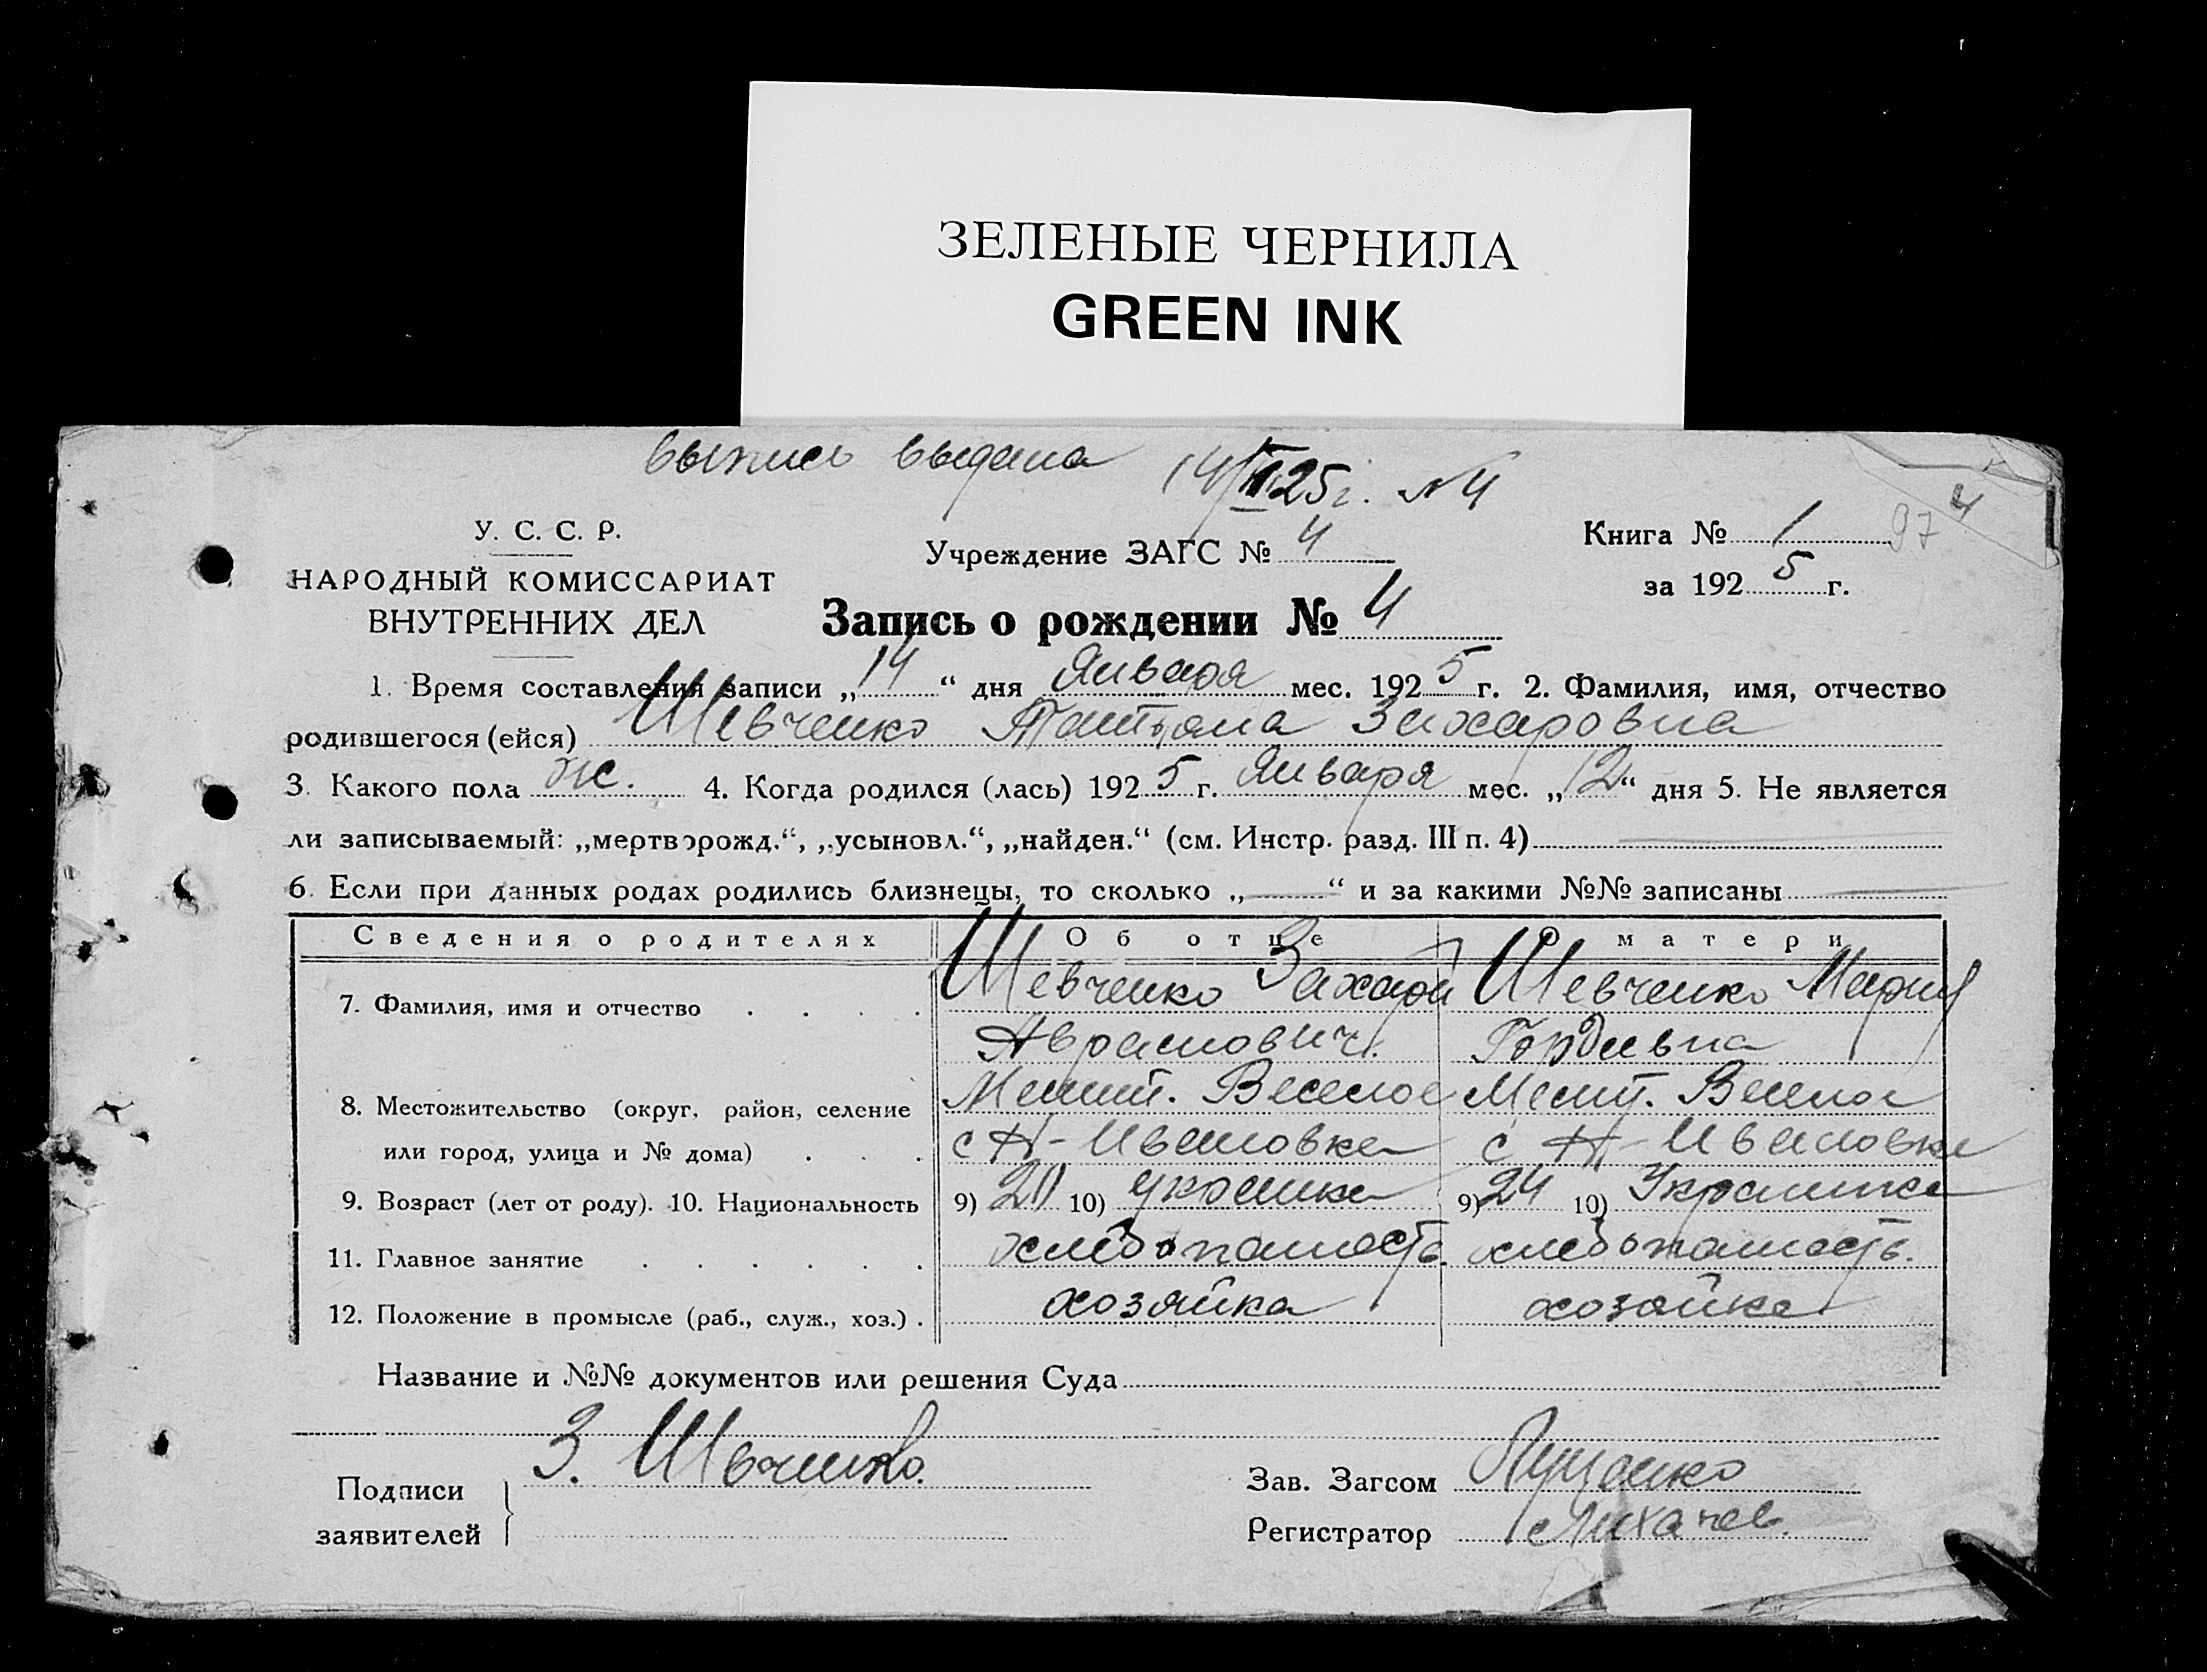 ЗЕЛЕНЫЕ ЧЕРНИЛА
GREEN INK
выпись выдана 14/I 25 г. №4
У. С. С. Р.
НАРОДНЫЙ КОМИССАРИАТ
ВНУТРЕННИХ ДЕЛ
Учреждение ЗАГС № 4
Книга № 1
97 4
за 1925 г.
Запись о рождении № 4
1. Время составления записи „14“ дня Января мес. 1925 г. 2. Фамилия, имя, отчество
родившегося (ейся) Шевченко Татьяна Захаровна
3. Какого пола ж. 4. Когда родился (лась) 1925 г. Января мес. „12“ дня 5. Не является
ли записываемый: „мертворожд.“, „усыновл.“, „найден.“ (см. Инстр. разд. III п. 4)
6. Если при данных родах родились близнецы, то сколько „—“ и за какими №№ записаны —
Сведения о родителях Об отце О матери
7. Фамилия, имя и отчество . . . . Шевченко Захарий Шевченко Мария
Аврамович. Гордиевна
8. Местожительство (округ, район, селение Мелит. Веселое Мелит. Веселое
или город, улица и № дома) . . . с Н-Ивановка с Н-Ивановка
9. Возраст (лет от роду). 10. Национальность 9) 20 10) украинка 9) 24 10) Украинка
11. Главное занятие . . . . . . хлебопашесть. хлебопашесть.
12. Положение в промысле (раб., служ., хоз.) . хозяйка хозяйка
Название и №№ документов или решения Суда
Подписи
заявителей
З. Швченко.
Зав. Загсом
Регистратор Лихачев